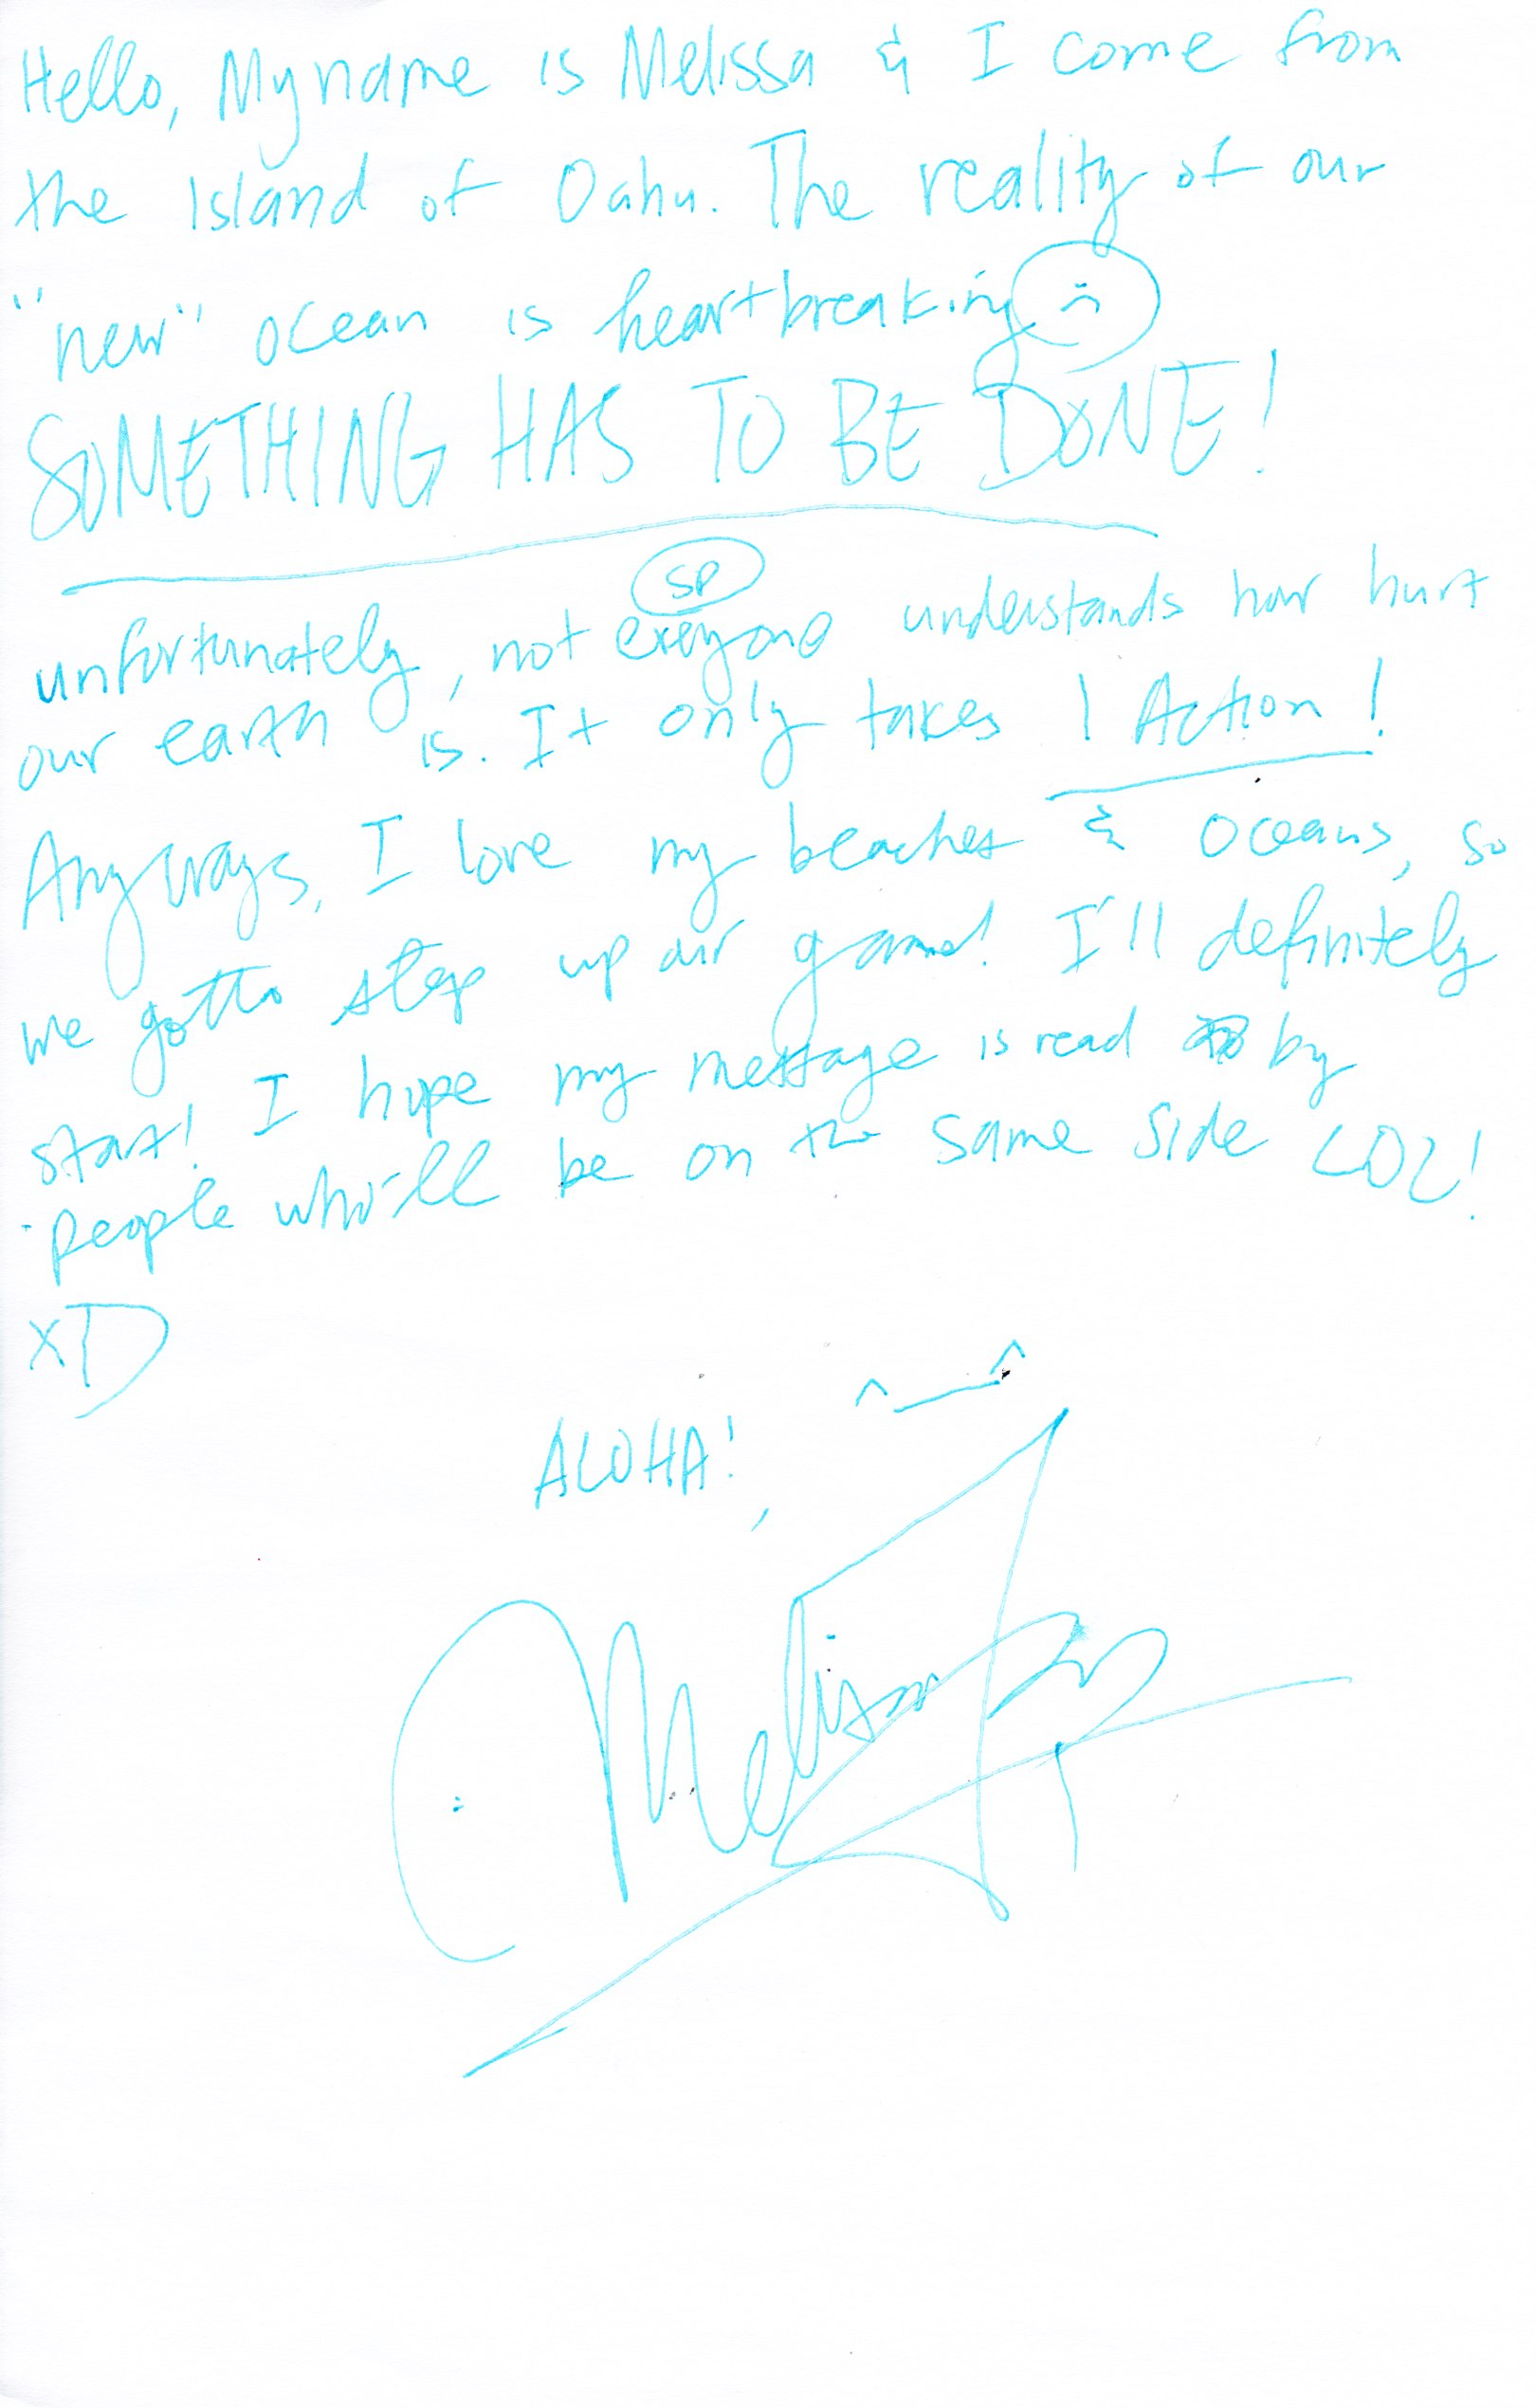 Hello, My name is Melissa & I come from
the Island of Oahu. The reality of our
"new" ocean is heartbreaking
SOMETHING HAS TO BE DONE!
SP
unfortunately, not exeyone understands how hurt
our earth is. It only takes 1 Action!
Anyways, I love my beaches & oceans, so
we gotta step up our game! I'll definitely
start! I hope my message is read by
people who'll be on the same side LOL!
XD
^_^
ALOHA!,
Melissa